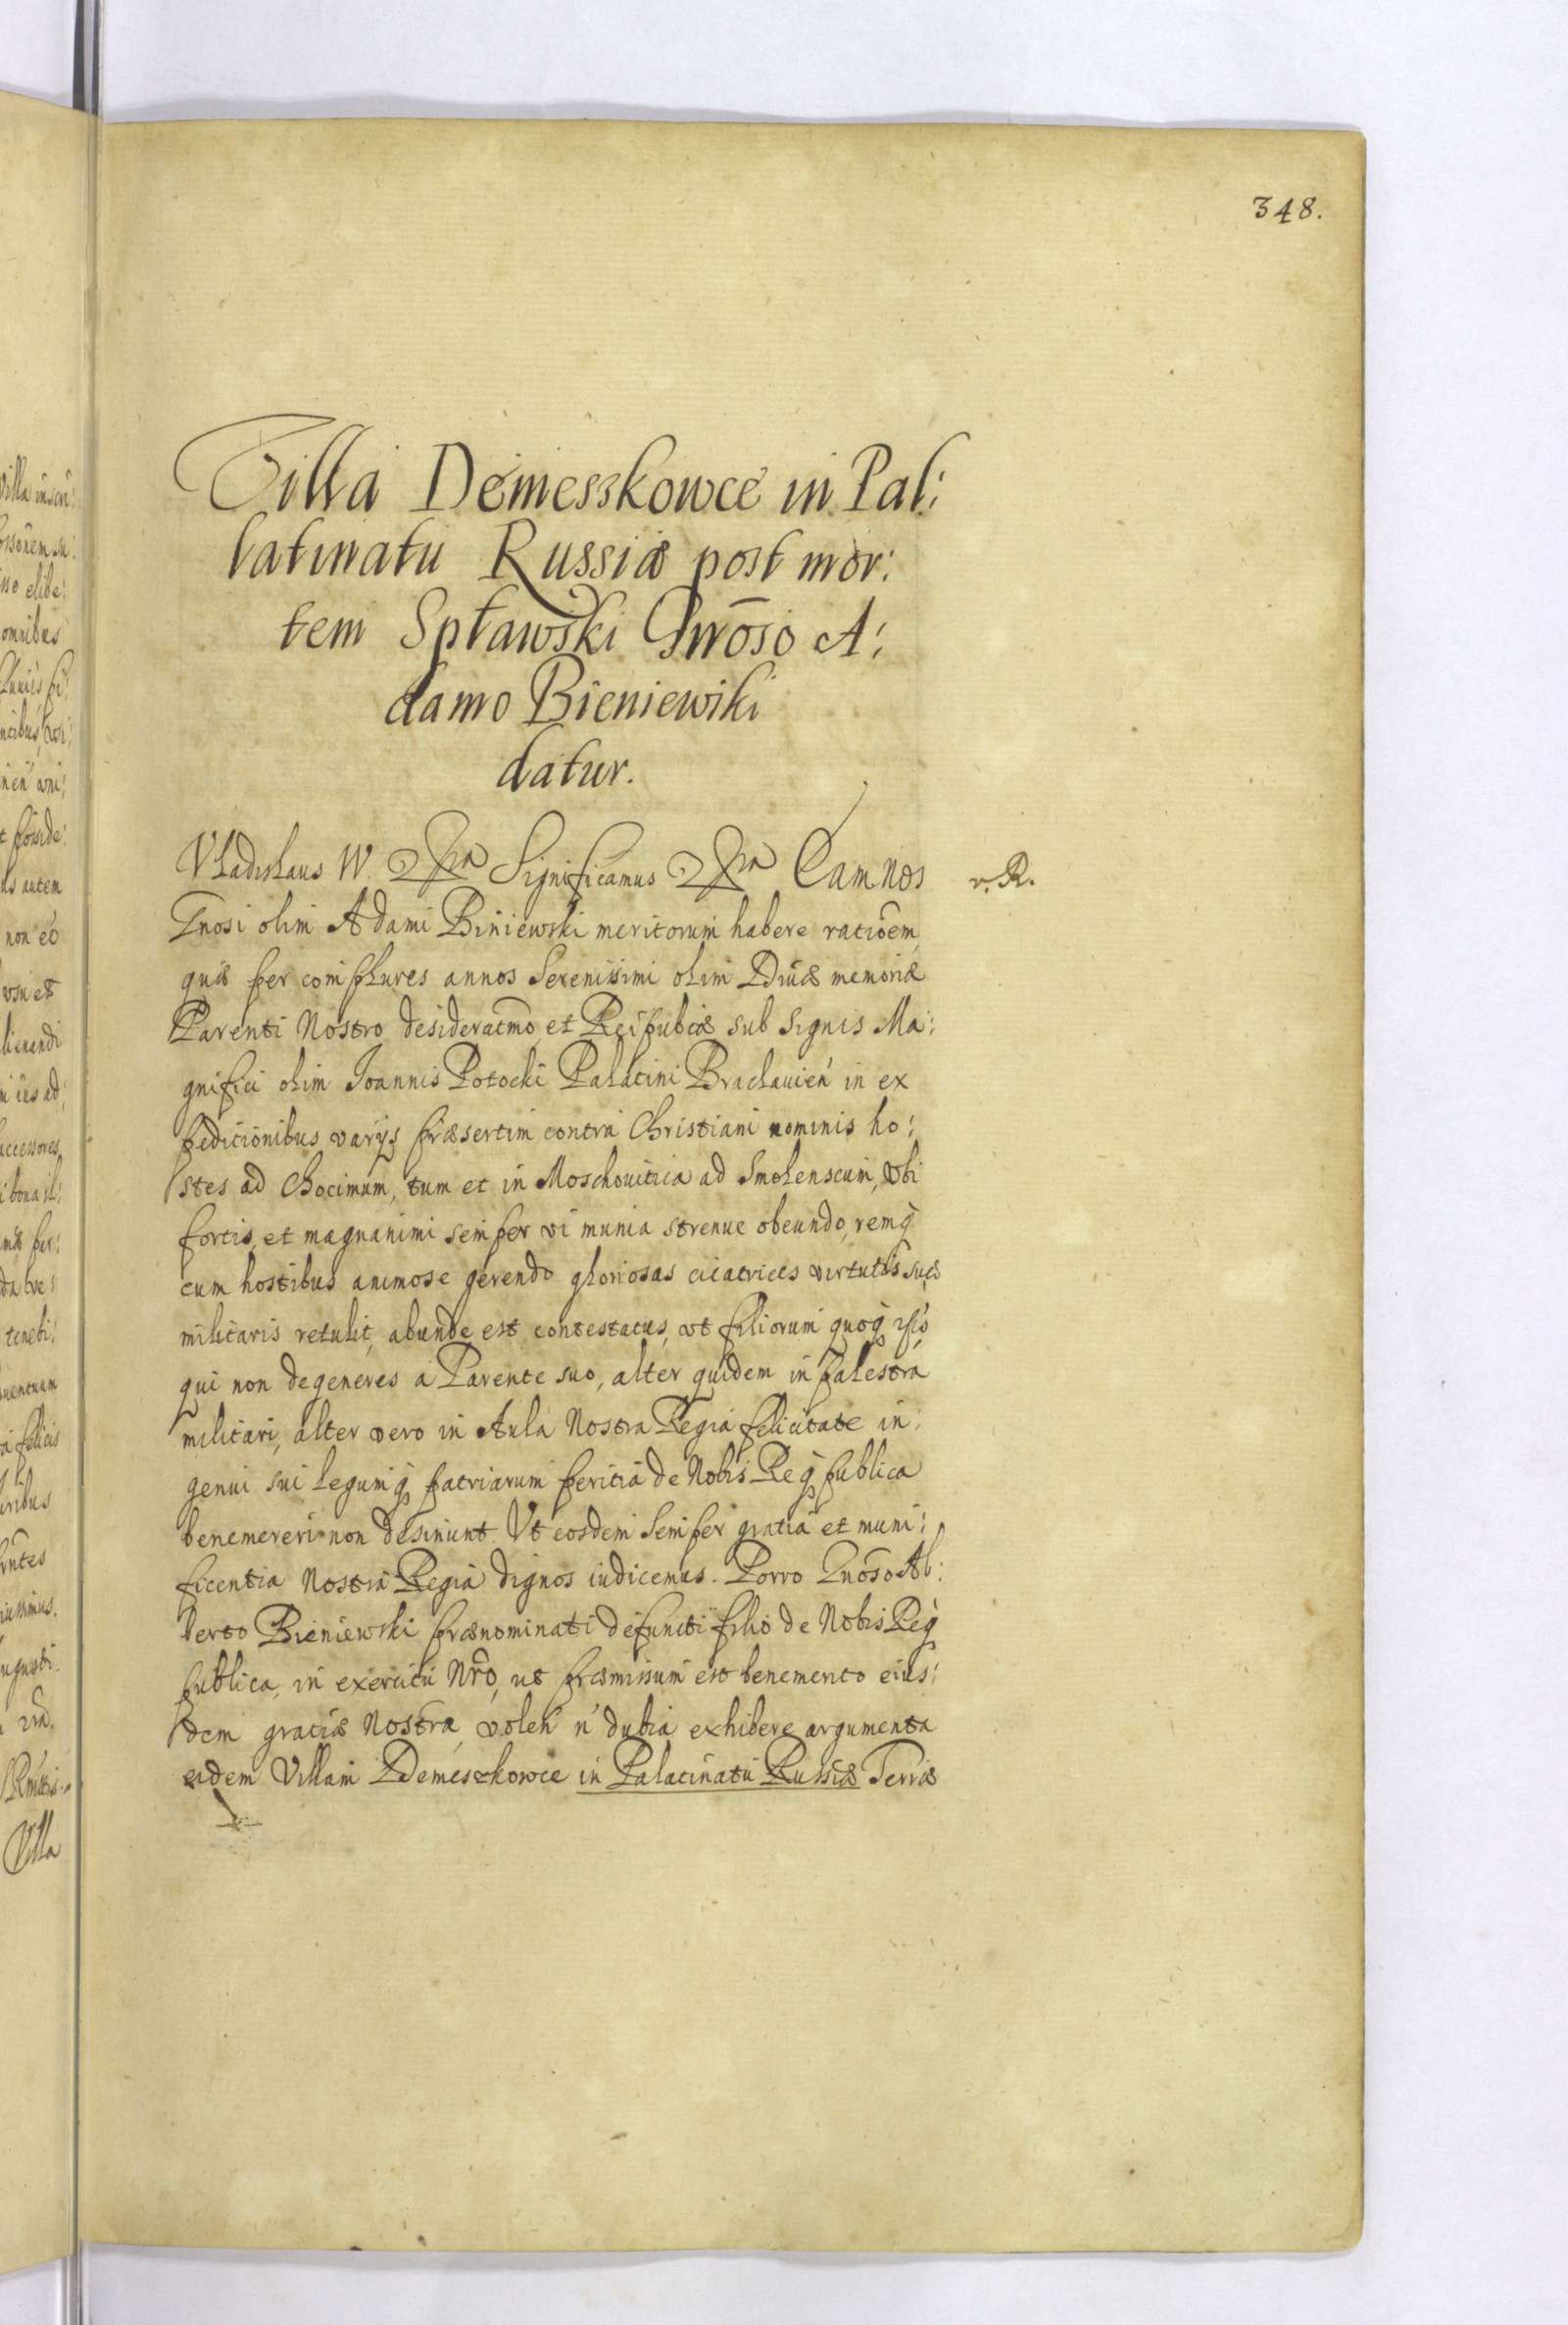 348.
Villa Demesskowce in Pal:
latinatu Russiæ post mor:
tem Spławski Gnōso A:
damo Bieniewiki
datur.
Vladislaus IV. Significamus Eam nos
v. R.
Gnosi olim Adami Biniewski meritorum habere ratiōem,
quis per complures annos Serenissimi olim Divæ memoriæ
Parenti Nostro desideratmo, et Reipubcæ sub signis Ma:
gnifici olim Joannis Potocki Palatini Braclavień in ex
peditionibus varijs præsertim contra Christiani nominis ho:
stes ad Chocimum, tum et in Moschovitica ad Smolenscum, vbi
fortis, et magnanimi semper vi munia strenue obeundo, remq
cum hostibus animose gerendo gloriosas cicatrices virtutis suæ
militaris retulit, abunde est contestatus, vt filiorum quoq ipſo
qui non degeneres a Parente suo, alter quidem in palestra
militari, alter vero in Aula Nostra Regia felicitate in:
genui sui legumq patriarum peritia de Nobis Req publica
benemereri non desinunt. Vt eosdem semper gratia et muni:
ficentia Nostra Regia dignos iudicemus. Porro Gnōso Al:
berto Bieniewski prænominati defuncti filio de Nobis Req
publica, in exercitu Nrō, ut præmissum est benemerito eius:
dem gratiæ Nostræ, voleń ń dubia exhibere argumenta
eidem Villam Demeszkowce in Palatinatu Russiæ Terræ
Villa